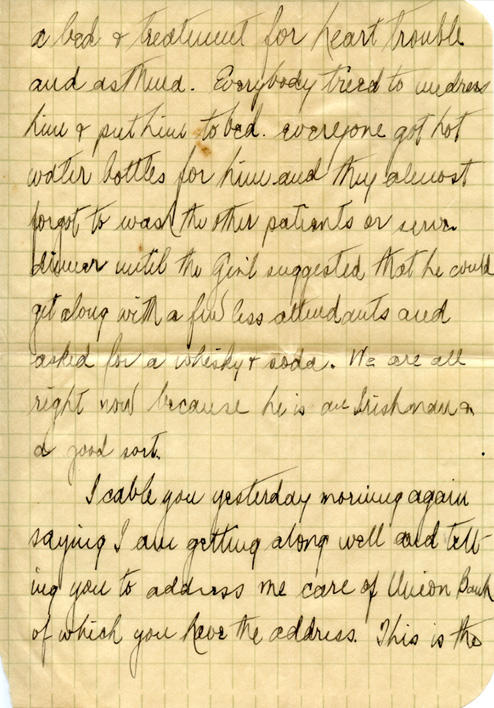 a bed & treatment for heart trouble
and asthma. Everybody tried to undress
him & put him to bed. everyone got hot
water bottles for him and they almost
forgot to wash the other patients or serve
dinner until the Girl suggested that he could
get along with a few less attendants and
asked for a whisky & soda. We are all
right now because he is an Irishman &
a good sort.
I cable you yesterday morning again
saying I am getting along well and tell-
ing you to address me care of Union Bank
of which you have the address. This is the